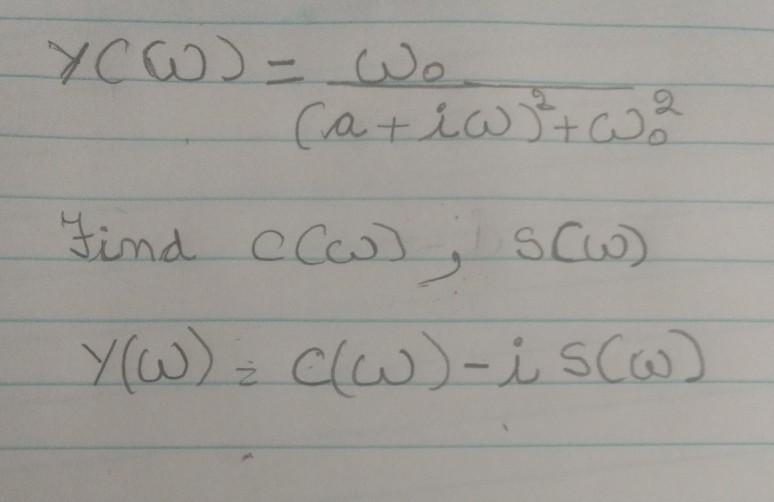 Y(ω) = ω₀ / ((a + iω)² + ω₀²)
Find C(ω), S(ω)
Y(ω) = C(ω) - i S(ω)